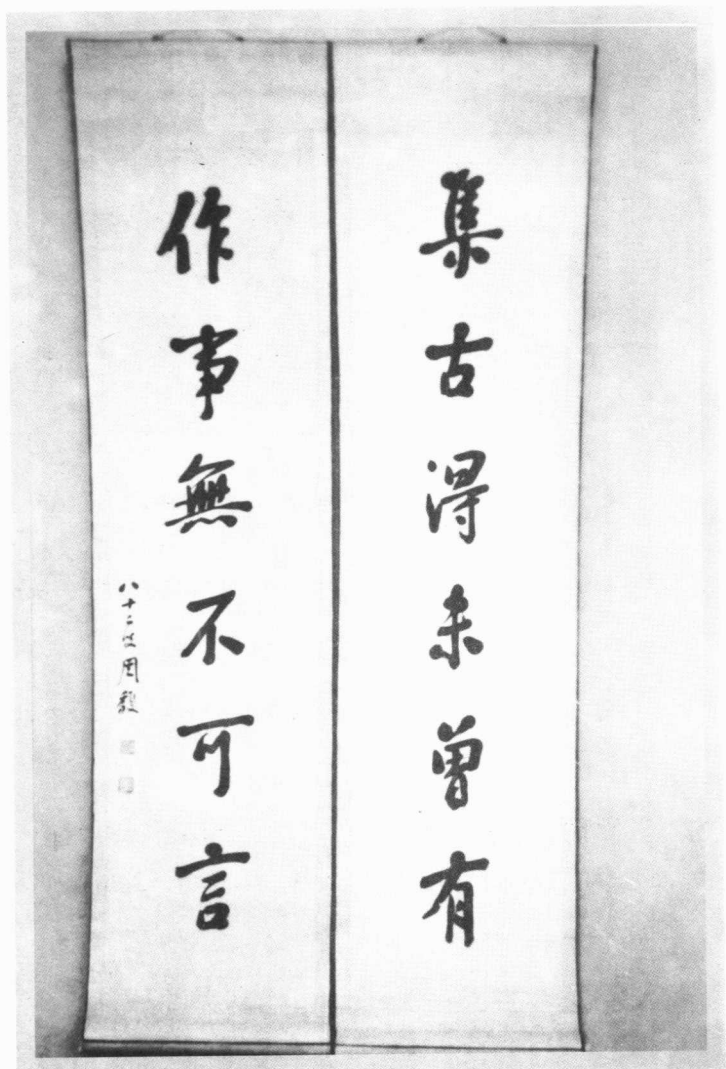 集古得未曾有
作事無不可言
八十二叟周毅